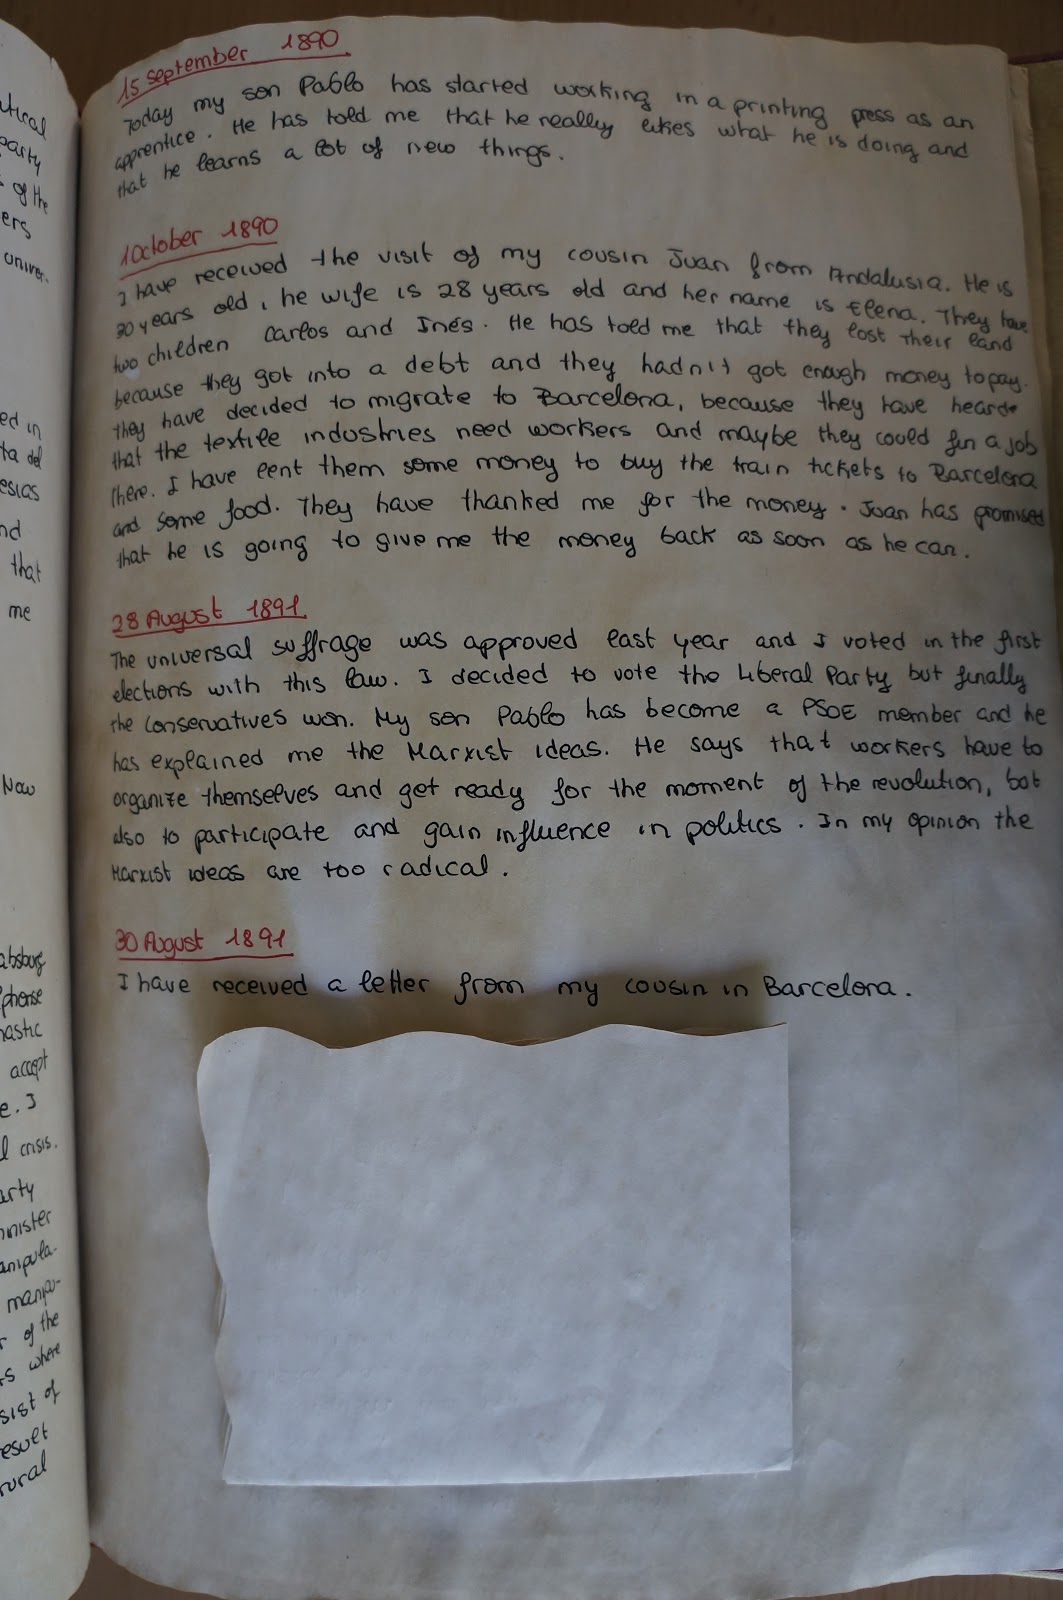 utical
party
of the
ers
univer-
ed in
ta del
esias
nd
that
me
Now
absburg
phonse
nastic
accept
e. I
l crisis.
arty
minister
anipula-
manipu-
r of the
rs where
sist of
result
rural
15 september 1890
Today my son Pablo has started working in a printing press as an
apprentice. He has told me that he really likes what he is doing and
that he learns a lot of new things.
1 October 1890
I have received the visit of my cousin Juan from Andalusia. He is
30 years old, he wife is 28 years old and her name is Elena. They have
two children Carlos and Inés. He has told me that they lost their land
because they got into a debt and they hadn't got enough money to pay.
they have decided to migrate to Barcelona, because they have heard
that the textile industries need workers and maybe they could fin a job
there. I have lent them some money to buy the train tickets to Barcelona
and some food. They have thanked me for the money. Juan has promised
that he is going to give me the money back as soon as he can.
28 August 1891
The universal suffrage was approved last year and I voted in the first
elections with this law. I decided to vote the Liberal Party but finally
the Conservatives won. My son Pablo has become a PSOE member and he
has explained me the Marxist ideas. He says that workers have to
organize themselves and get ready for the moment of the revolution, but
also to participate and gain influence in politics. In my opinion the
Marxist ideas are too radical.
30 August 1891
I have received a letter from my cousin in Barcelona.